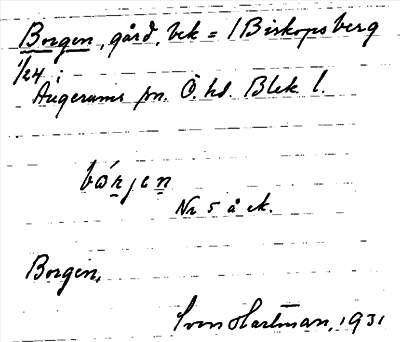 Borgen, gård, bek = 1 Biskopsberg
1/24 i
Augerums sn. Ö. hd. Blek l.
bórjen
Nr 5 å ek.
Borgen.
Sven Hartman, 1931